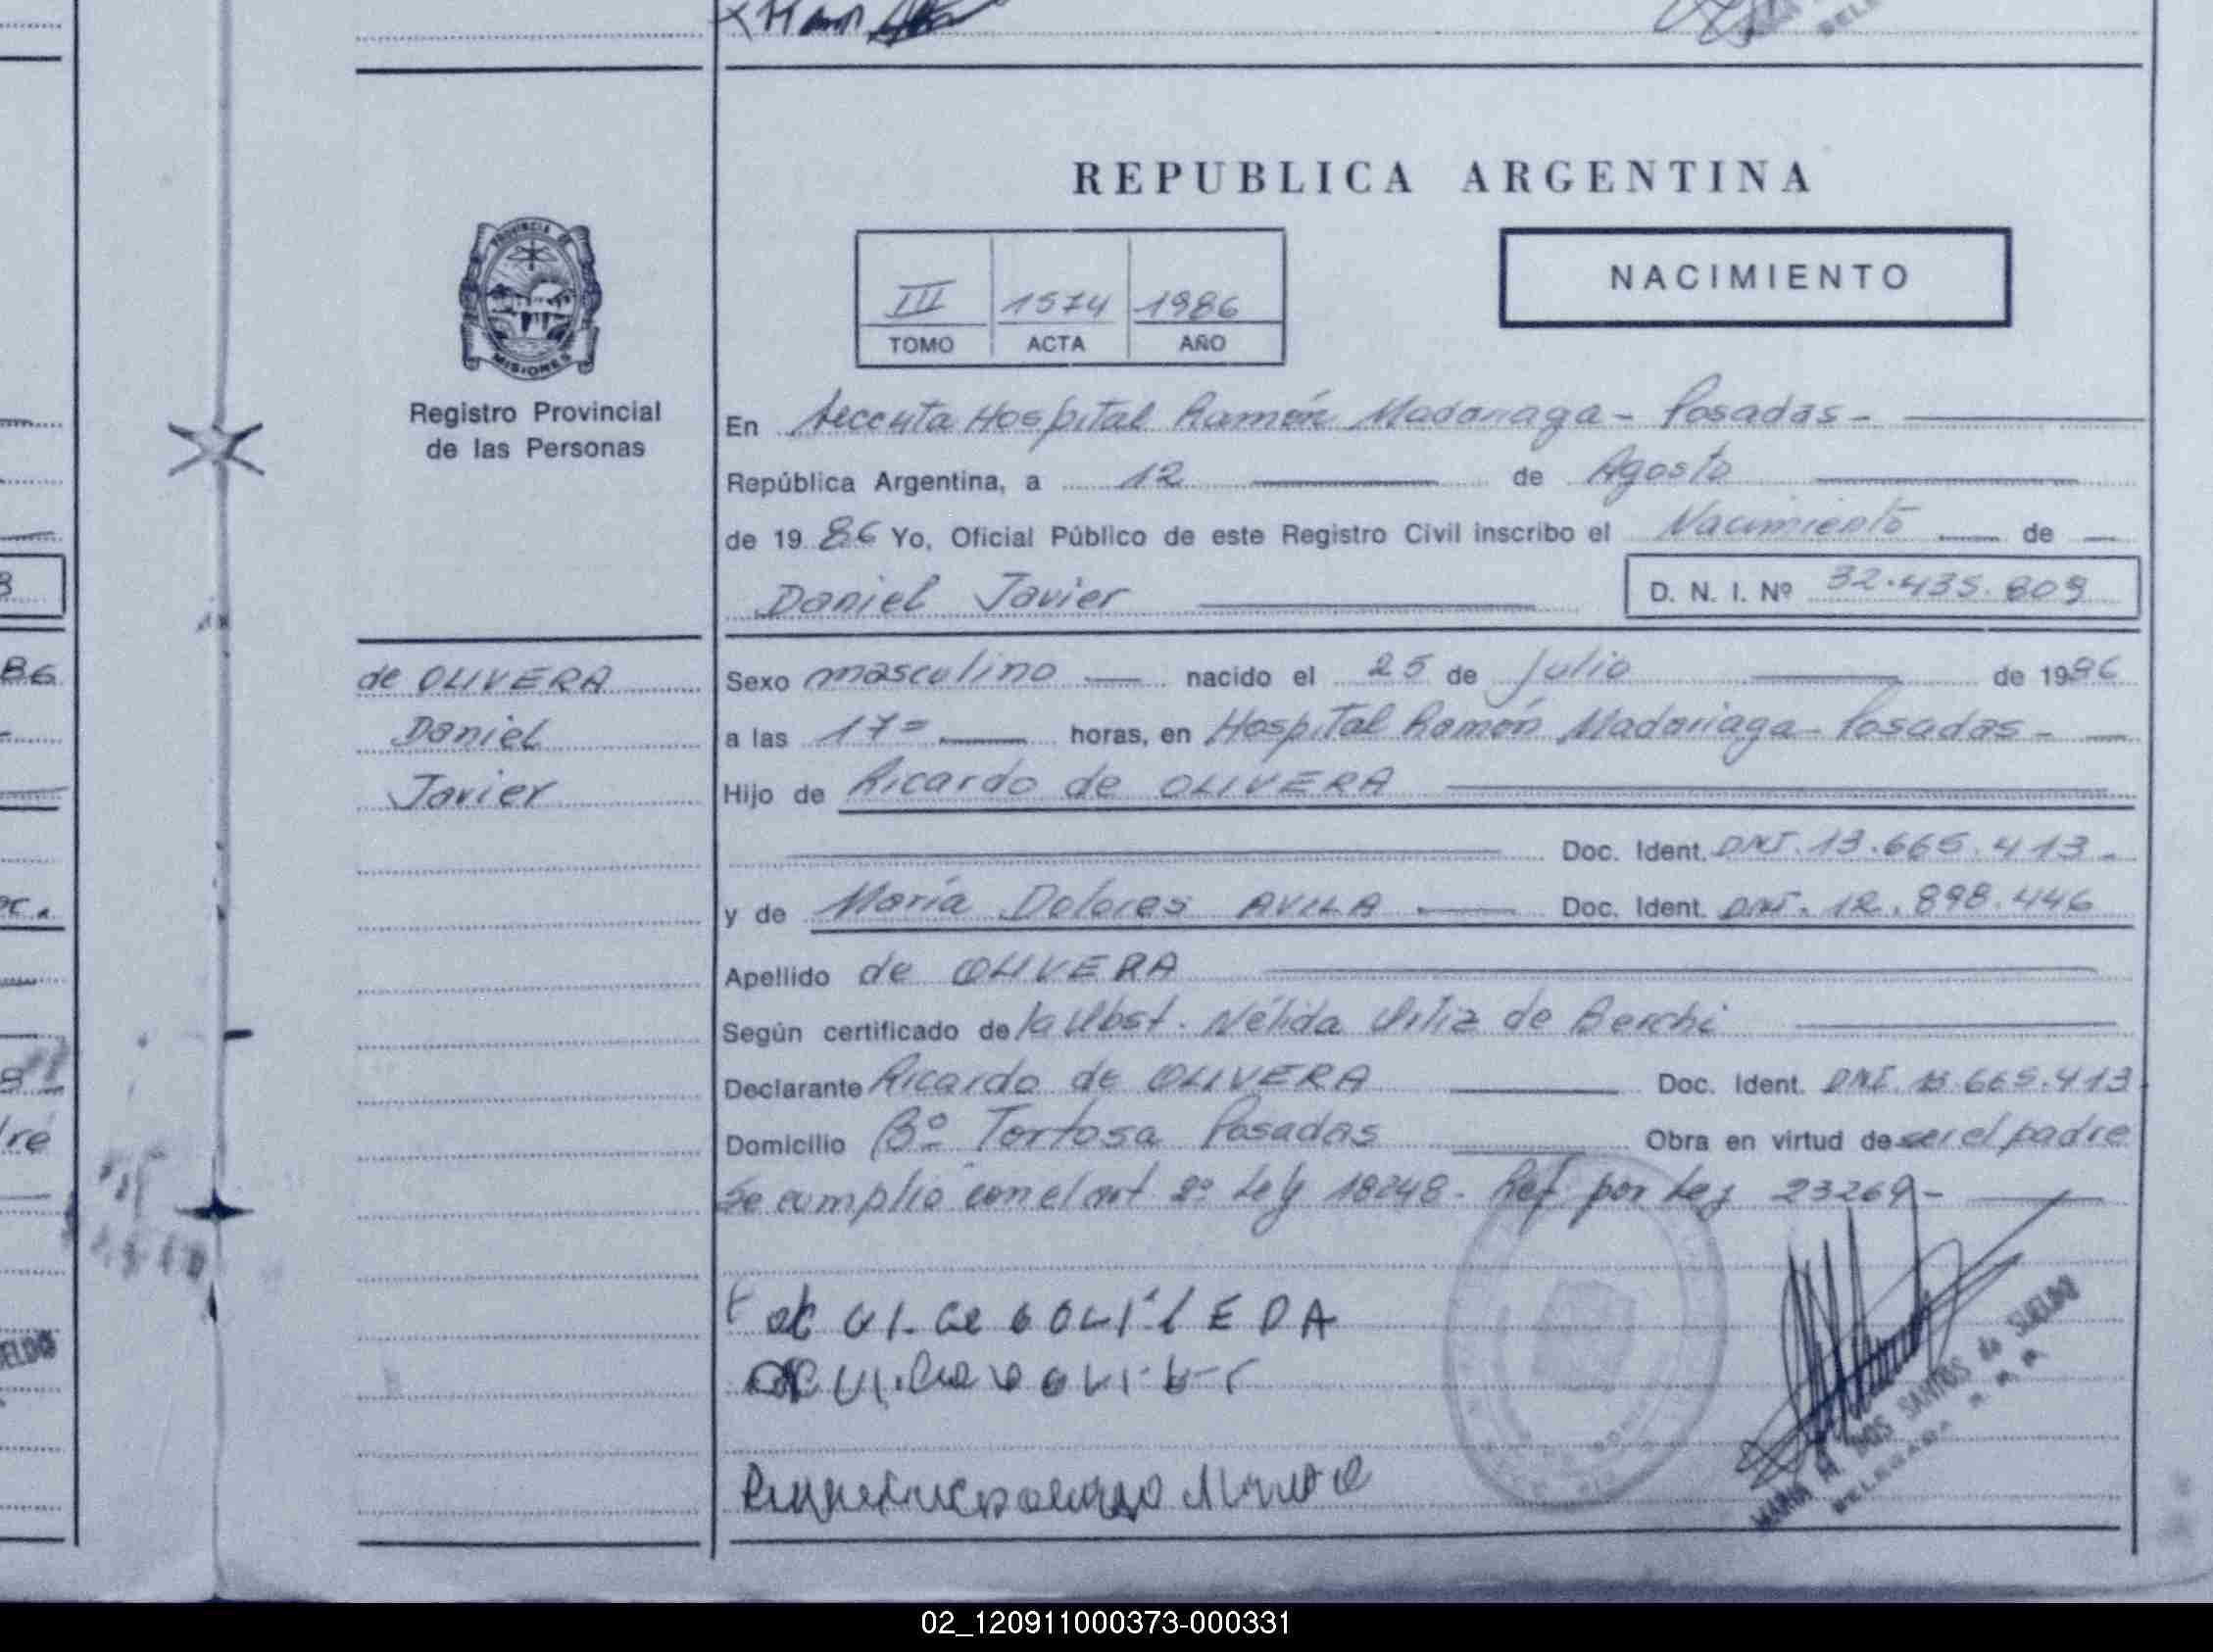 REPUBLICA ARGENTINA
NACIMIENTO
III 1574 1986
TOMO ACTA AÑO
PROVINCIA DE
MISIONES
Registro Provincial
de las Personas
En Hospital Ramón Madariaga - Posadas -
República Argentina, a 12 de Agosto
de 1986 Yo, Oficial Público de este Registro Civil inscribo el Nacimiento de
Daniel Javier D. N. I. Nº 32.435.809
de OLIVERA
Daniel
Javier
Sexo masculino nacido el 25 de Julio de 1986
a las 17= horas, en Hospital Ramón Madariaga - Posadas -
Hijo de Ricardo de OLIVERA
Doc. Ident. DNI. 13.665.413.-
y de María Dolores AVILA Doc. Ident. DNI. 12.898.446
Apellido de OLIVERA
Según certificado de la Obst. Nélida de Berchi
Declarante Ricardo de OLIVERA Doc. Ident. DNI 13.665.413
Domicilio Bº Tortosa Posadas Obra en virtud de ser el padre
Se cumplió con el art 2º Ley 18248. Ref por Ley 23269 -
MARIA A. DOS SANTOS de SUELDO
DELEGADA
02_120911000373-000331